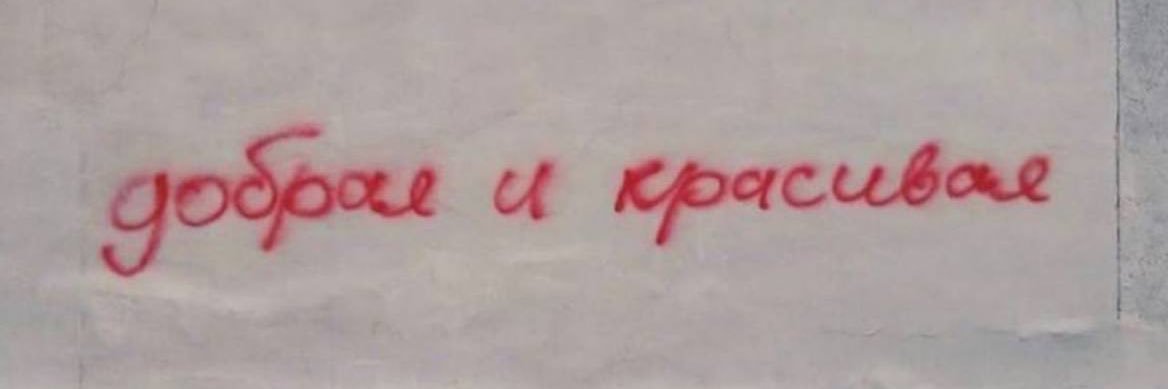 добрая и красивая